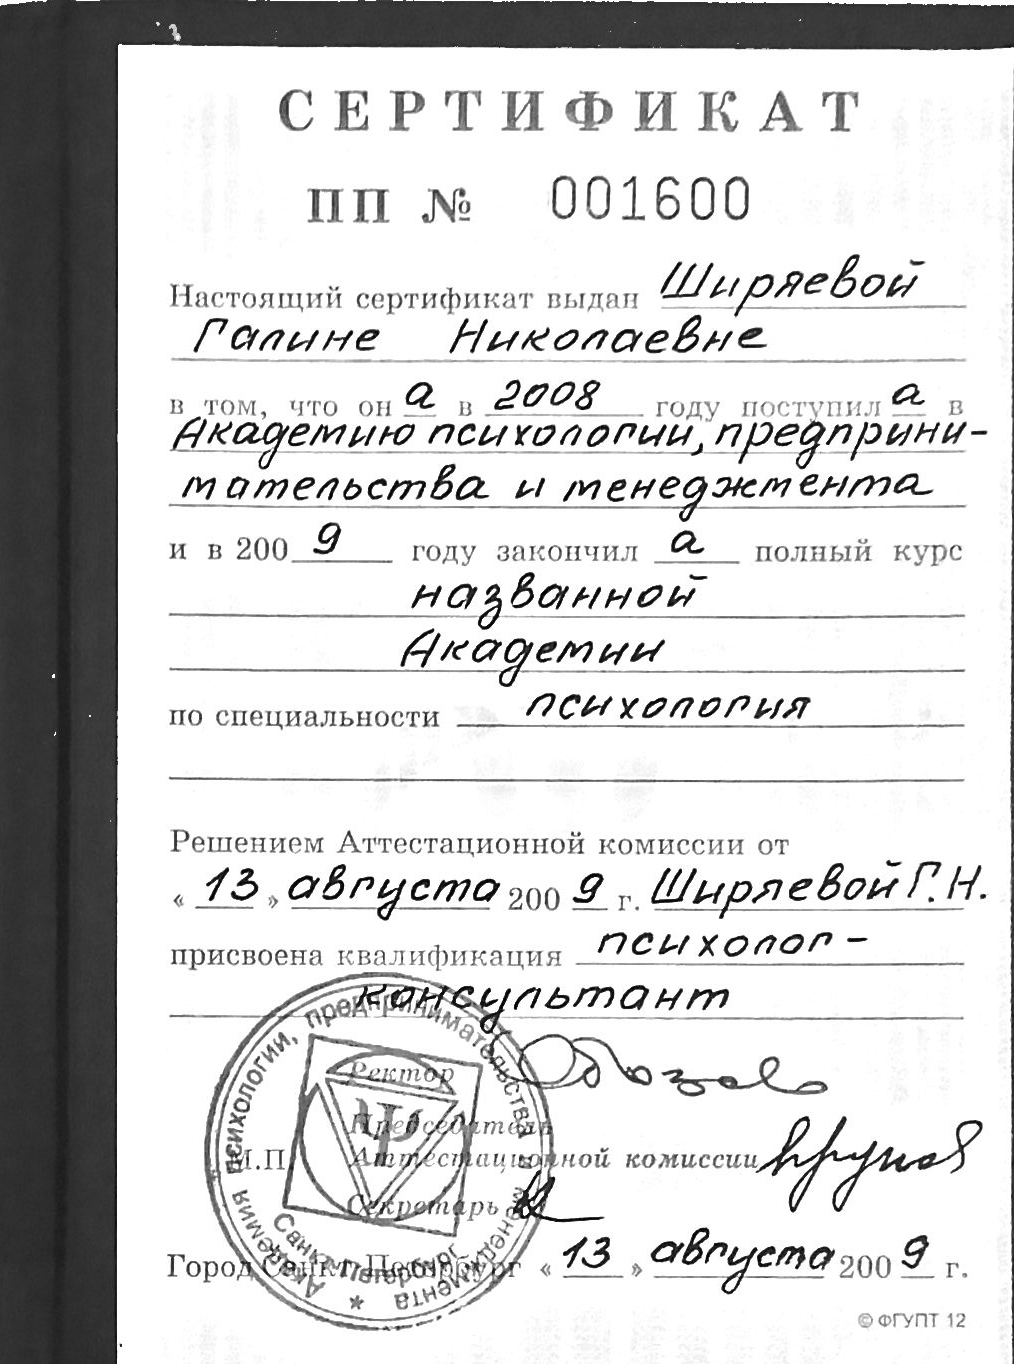 СЕРТИФИКАТ
ПП № 001600
Настоящий сертификат выдан Ширяевой
Галине Николаевне
в том, что он а в 2008 году поступил а в
Академию психологии, предприни-
мательства и менеджмента
и в 2009 году закончил а полный курс
названной
Академии
по специальности психология
Решением Аттестационной комиссии от
« 13 » августа 2009 г. Ширяевой Г.Н.
присвоена квалификация психолог-
консультант
Ректор
Председатель
М.П. Аттестационной комиссии
Секретарь
Город Санкт-Петербург « 13 » августа 2009 г.
Академия психологии, предпринимательства и менеджмента
Санкт-Петербург
© ФГУПТ 12